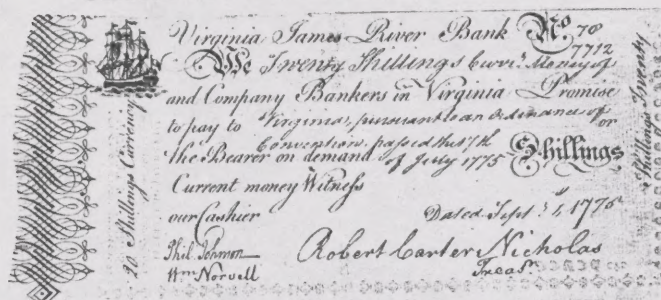 Virginia James River Bank No. 70
7712
We Twenty Shillings Curr.t Money of
and Company Bankers in Virginia Promise
to pay to Virginia, pursuant to an Ordinance of or
Convention, passed this 7th
the Bearer on demand of July 1775 Shillings
Current money Witness
our Cashier
Dated Sept 1, 1775
Phil. Johnson
Robert Carter Nicholas
Wm Norvell
Treas.r
20 Shillings Currency
Shillings Twenty